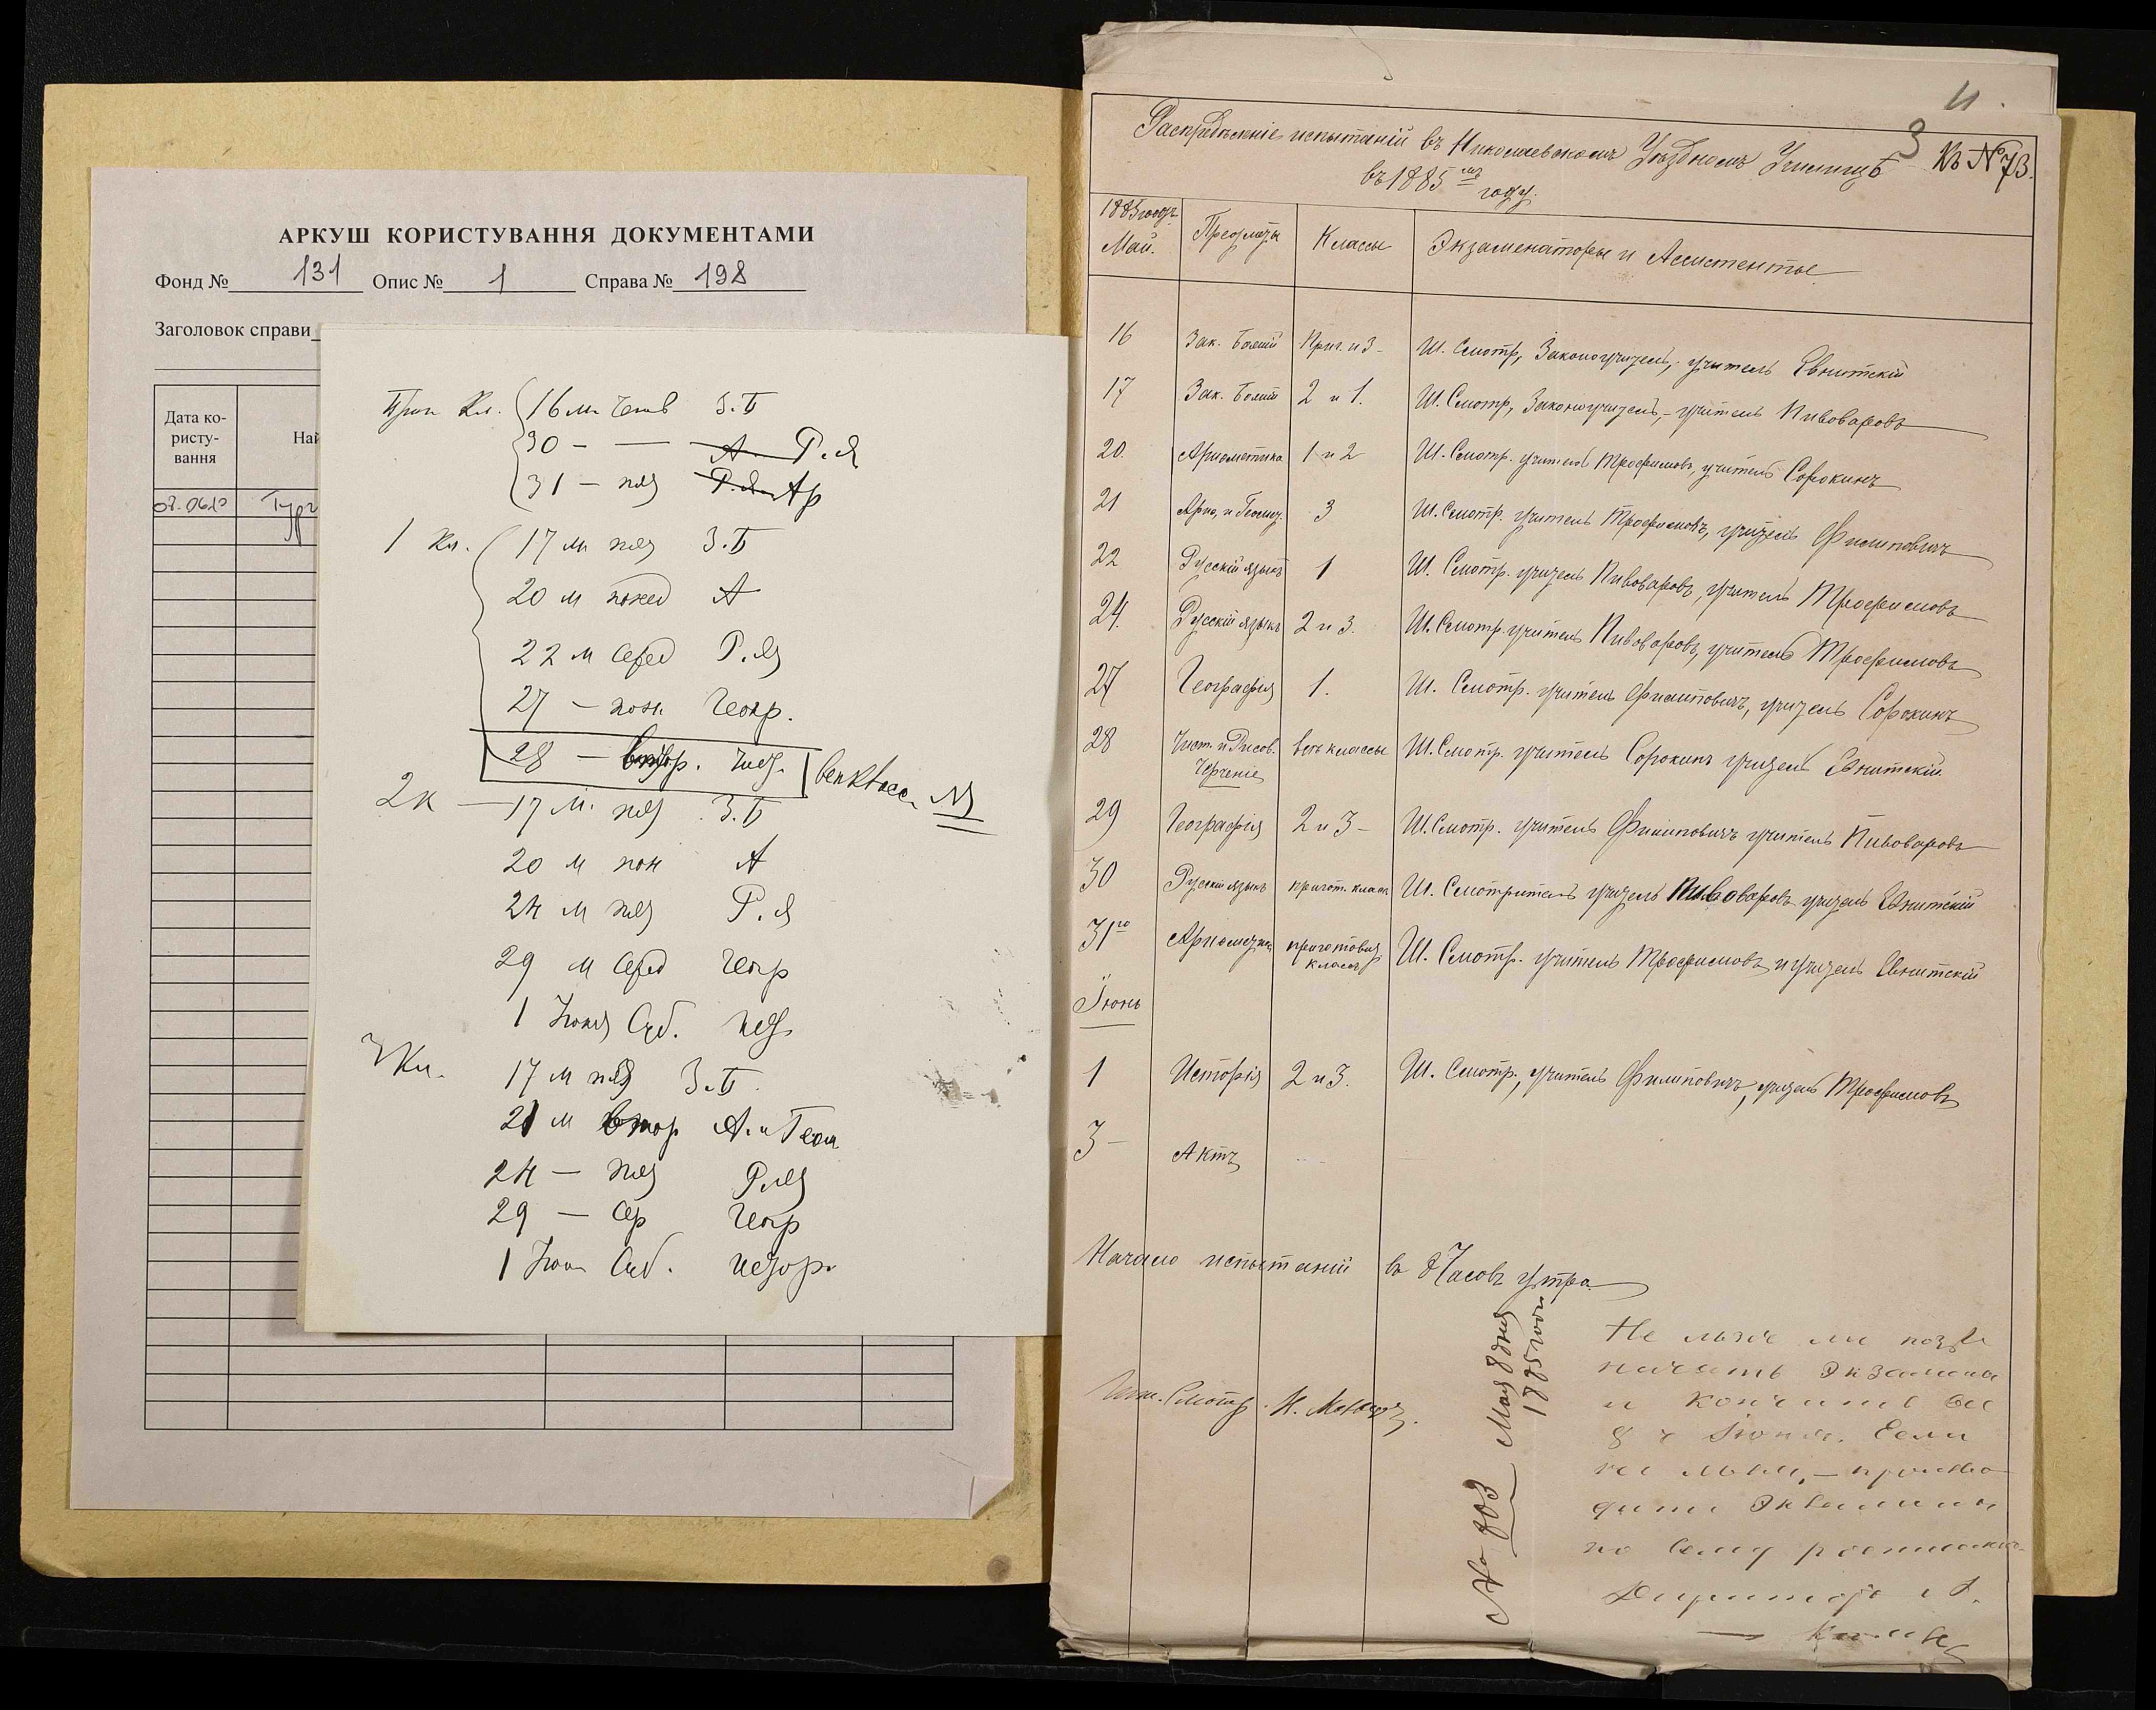 АРКУШ КОРИСТУВАННЯ ДОКУМЕНТАМИ
Фонд № 131 Опис № 1 Справа № 198
Заголовок справи
Дата ко-
ристу-
вання
Най
Приг Кл. 16 м. Четв З.Б
30 — — А. Р.Я
31 — пят Р.Яз Ар
1 Кл. 17 м пят З.Б
20 м понед А
22 м серед Р.Яз
27 — пон. Геогр.
28 — втор. Чист.
2 к — 17 м. пят З.Б
20 м пон А
24 м пят Р.Я
29 м серед Геогр
1 Июня Суб. ист
3 Кл. 17 м пят З.Б.
21 м втор А. и Геом
24 — пят Р.Яз
29 — ср Геогр
1 Июн Суб. истор.
11.
3
Распредѣленіе испытаній въ Николаевскомъ Уѣздномъ Училищѣ Къ № 73.
въ 1885 мъ году.
1885 года Май. Предметы Классы Экзаменаторы и Ассистенты
16 Зак. Божій Приг. и 3 - Ш. Смотр, Законоучитель, учитель Евнитскій
17 Зак. Божій 2 и 1. Ш. Смотр, Законоучитель, - учитель Пивоваровъ
20. Ариѳметика 1 и 2 Ш. Смотр. учитель Трофимовъ, учитель Сорокинъ
21 Ариѳ. и Геомет. 3 Ш. Смотр. учитель Трофимовъ, учитель Филиповичъ
22 Русскій языкъ 1 Ш. Смотр. учитель Пивоваровъ, учитель Трофимовъ
24. Русскій языкъ 2 и 3. Ш. Смотр. учитель Пивоваровъ, учитель Трофимовъ
27 Географія 1. Ш. Смотр. учитель Филиповичъ, учитель Сорокинъ
28 Чист. и Рисов. Черченіе всѣ классы Ш. Смотр. учитель Сорокинъ учитель Евнитскій
29 Географія 2 и 3 - Ш. Смотр. учитель Филиповичъ учитель Пивоваровъ
30 Русскій языкъ пригот. классъ Ш. Смотритель учитель Пивоваровъ учитель Евнитскій
31го Ариѳметика приготовит классъ Ш. Смотр. учитель Трофимовъ и учитель Евнитскій
Іюнь
1 Исторія 2 и 3. Ш. Смотр., учитель Филиповичъ, учитель Трофимовъ
3 - Актъ
Начало испытаній въ 8 Часовъ утра
Штат. Смотр. Н.
№ 803 Мая 8 дня
1885 года
начать Экзамены
и кончить все
8 Іюня. Если
дить Экзамены
по сему росписанію